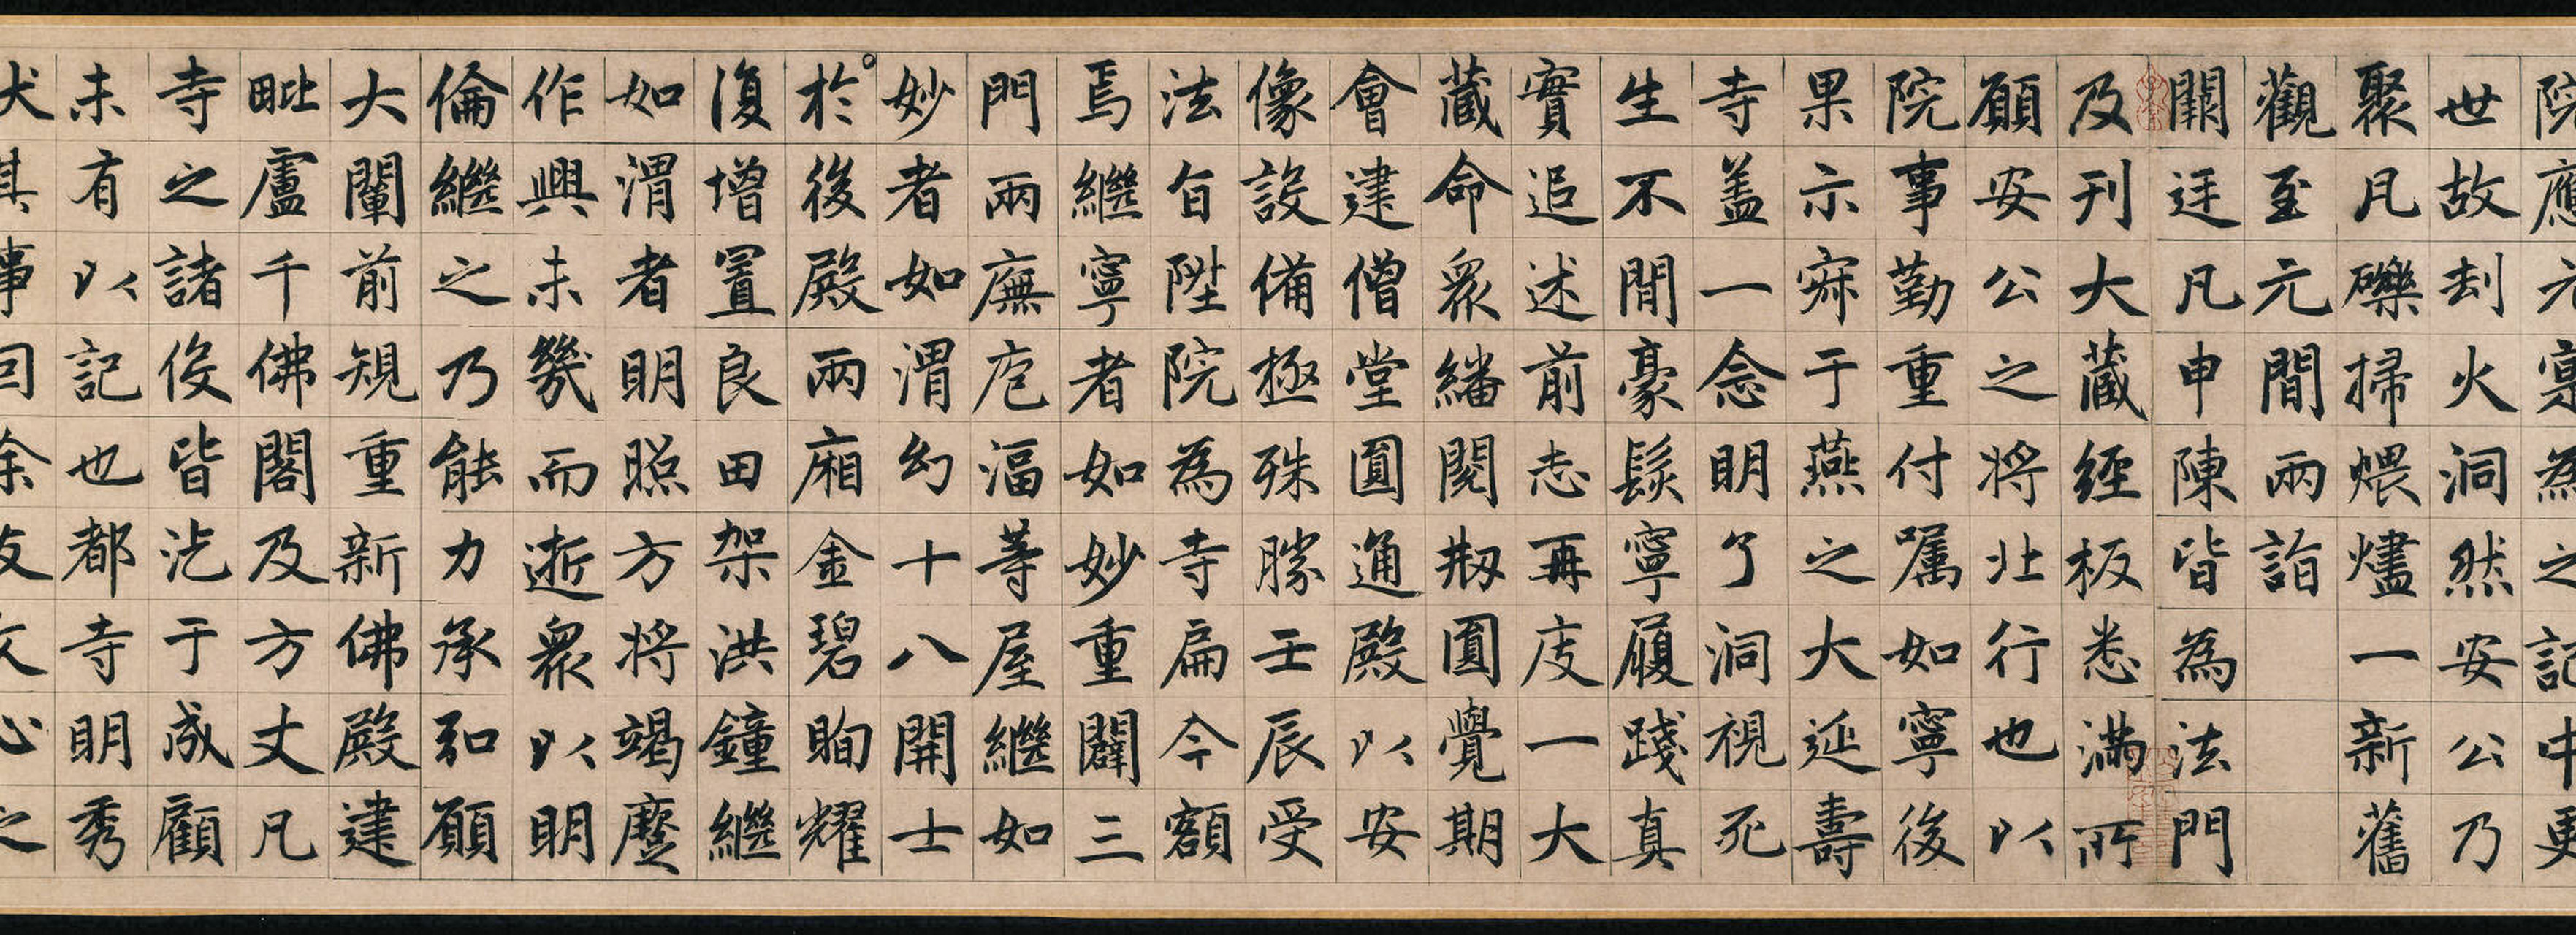 院應元寔為之記中更
世故刦火洞然安公乃
聚凡礫掃煨燼一新舊
觀至元間兩詣
闕廷凡申陳皆為法門
及刊大藏經板悉滿所
願安公之將北行也以
院事勤重付囑如寧後
果示寂于燕之大延壽
寺盖一念明了洞視死
生不間豪髮寧履踐真
實追述前志再度一大
藏命眾繙閱剏圓覺期
會建僧堂圓通殿以安
像設備極殊勝壬辰受
法旨陞院為寺扁今額
焉繼寧者如妙重闢三
門兩廡庖湢等屋繼如
妙者如渭幻十八開士
於後殿兩廂金碧眴耀
復增置良田架洪鐘繼
如渭者明照方將竭蹙
作興未幾而逝眾以明
倫繼之乃能力承弘願
大闡前規重新佛殿建
毗盧千佛閣及方丈凡
寺之諸役皆汔于成顧
未有以記也都寺明秀
狀其事囙余友文心之